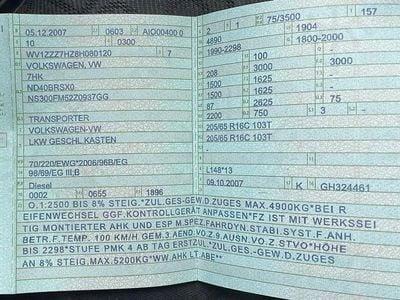 05.12.2007 0603 AIO00400 0
10 0300
WV1ZZZ7HZ8H080120 7
VOLKSWAGEN, VW
7HK
ND40BRSX0
NS300FM52Z0937GG
TRANSPORTER
VOLKSWAGEN-VW
LKW GESCHL.KASTEN
70/220/EWG*2006/96B/EG
98/69/EG III;B
Diesel
0002 0655 1896
2 1 75/3500 157
4890 1904
1990-2298 1800-2000
100
208 3000 3000
1500 1625
1500 1625
87 2620 75
2200 750 3 -
205/65 R16C 103T
205/65 R16C 103T
-
L148*13
09.10.2007 K GH324461
O.1:2500 BIS 8% STEIG.*ZUL.GES-GEW.D.ZUGES MAX.4900KG*BEI R
EIFENWECHSEL GGF.KONTROLLGERÄT ANPASSEN*FZ IST MIT WERKSSEI
TIG MONTIERTER AHK UND ESP M.SPEZ.FAHRDYN.STABI.SYST.F.ANH.
BETR.F.TEMP. 100 KM/H GEM.3.AEND.VO.Z.9.AUSN.VO.Z.STVO*HÖHE
BIS 2298*STUFE PMK 4 AB TAG ERSTZUL.*ZUL.GES.-GEW.D.ZUGES
AN 8% STEIG.MAX.5200KG*WW.AHK LT.ABE**